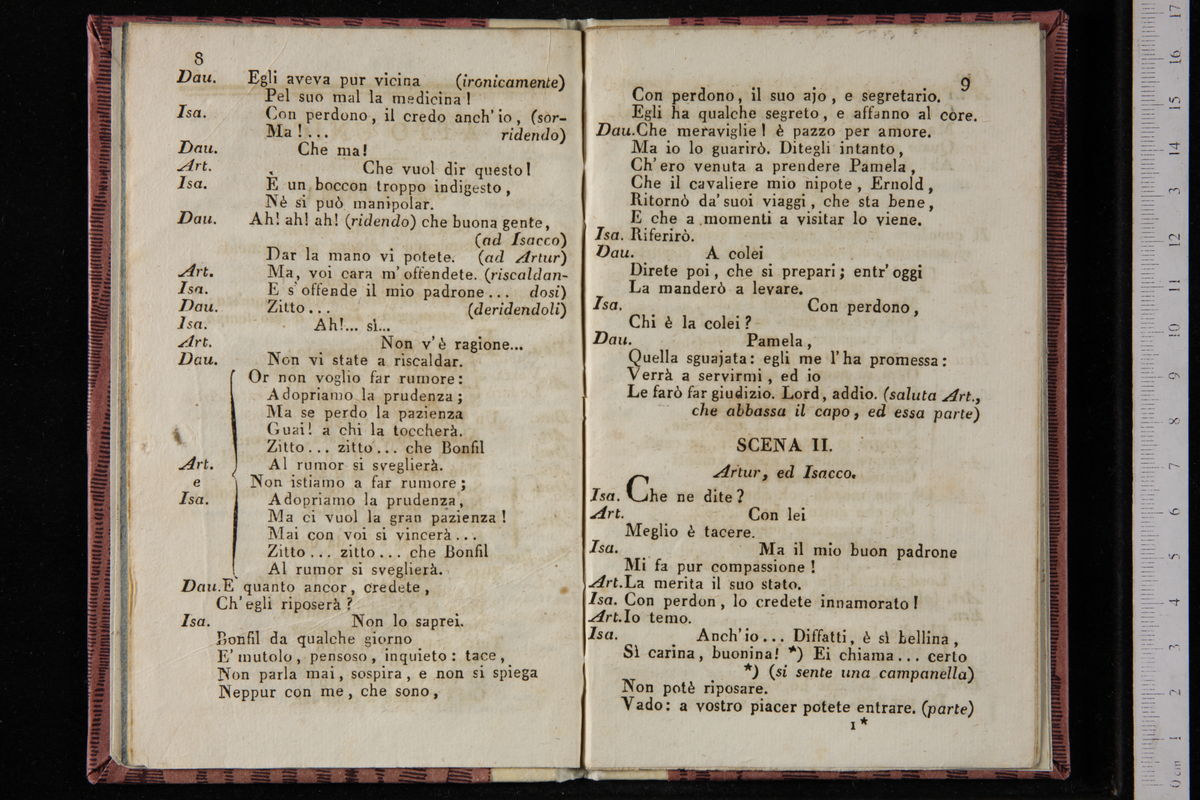 8
Dau. Egli aveva pur vicina (ironicamente)
Pel suo mal la medicina!
Isa. Con perdono, il credo anch'io, (sor-
Ma!... ridendo)
Dau. Che ma!
Art. Che vuol dir questo!
Isa. È un boccon troppo indigesto,
Nè si può manipolar.
Dau. Ah! ah! ah! (ridendo) che buona gente,
(ad Isacco)
Dar la mano vi potete. (ad Artur)
Art. Ma, voi cara m'offendete. (riscaldan-
Isa. E s'offende il mio padrone... dosi)
Dau. Zitto... (deridendoli)
Isa. Ah!... sì...
Art. Non v'è ragione...
Dau. Non vi state a riscaldar.
Or non voglio far rumore:
Adopriamo la prudenza;
Ma se perdo la pazienza
Guai! a chi la toccherà.
Zitto... zitto... che Bonfil
Art. Al rumor si sveglierà.
e Non istiamo a far rumore;
Isa. Adopriamo la prudenza,
Ma ci vuol la gran pazienza!
Mai con voi si vincerà...
Zitto... zitto... che Bonfil
Al rumor si sveglierà.
Dau. E quanto ancor, credete,
Ch'egli riposerà?
Isa. Non lo saprei.
Bonfil da qualche giorno
E' mutolo, pensoso, inquieto: tace,
Non parla mai, sospira, e non si spiega
Neppur con me, che sono,
9
Con perdono, il suo ajo, e segretario.
Egli ha qualche segreto, e affanno al còre.
Dau. Che meraviglie! è pazzo per amore.
Ma io lo guarirò. Ditegli intanto,
Ch'ero venuta a prendere Pamela,
Che il cavaliere mio nipote, Ernold,
Ritornò da'suoi viaggi, che sta bene,
E che a momenti a visitar lo viene.
Isa. Riferirò.
Dau. A colei
Direte poi, che si prepari; entr'oggi
La manderò a levare.
Isa. Con perdono,
Chi è la colei?
Dau. Pamela,
Quella sguajata: egli me l'ha promessa:
Verrà a servirmi, ed io
Le farò far giudizio. Lord, addio. (saluta Art.,
che abbassa il capo, ed essa parte)
SCENA II.
Artur, ed Isacco.
Isa. Che ne dite?
Art. Con lei
Meglio è tacere.
Isa. Ma il mio buon padrone
Mi fa pur compassione!
Art. La merita il suo stato.
Isa. Con perdon, lo credete innamorato!
Art. Io temo.
Isa. Anch'io... Diffatti, è sì bellina,
Sì carina, buonina! *) Ei chiama... certo
*) (si sente una campanella)
Non potè riposare.
Vado: a vostro piacer potete entrare. (parte)
1*
0 cm 1 2 3 4 5 6 7 8 9 10 11 12 13 14 15 16 17